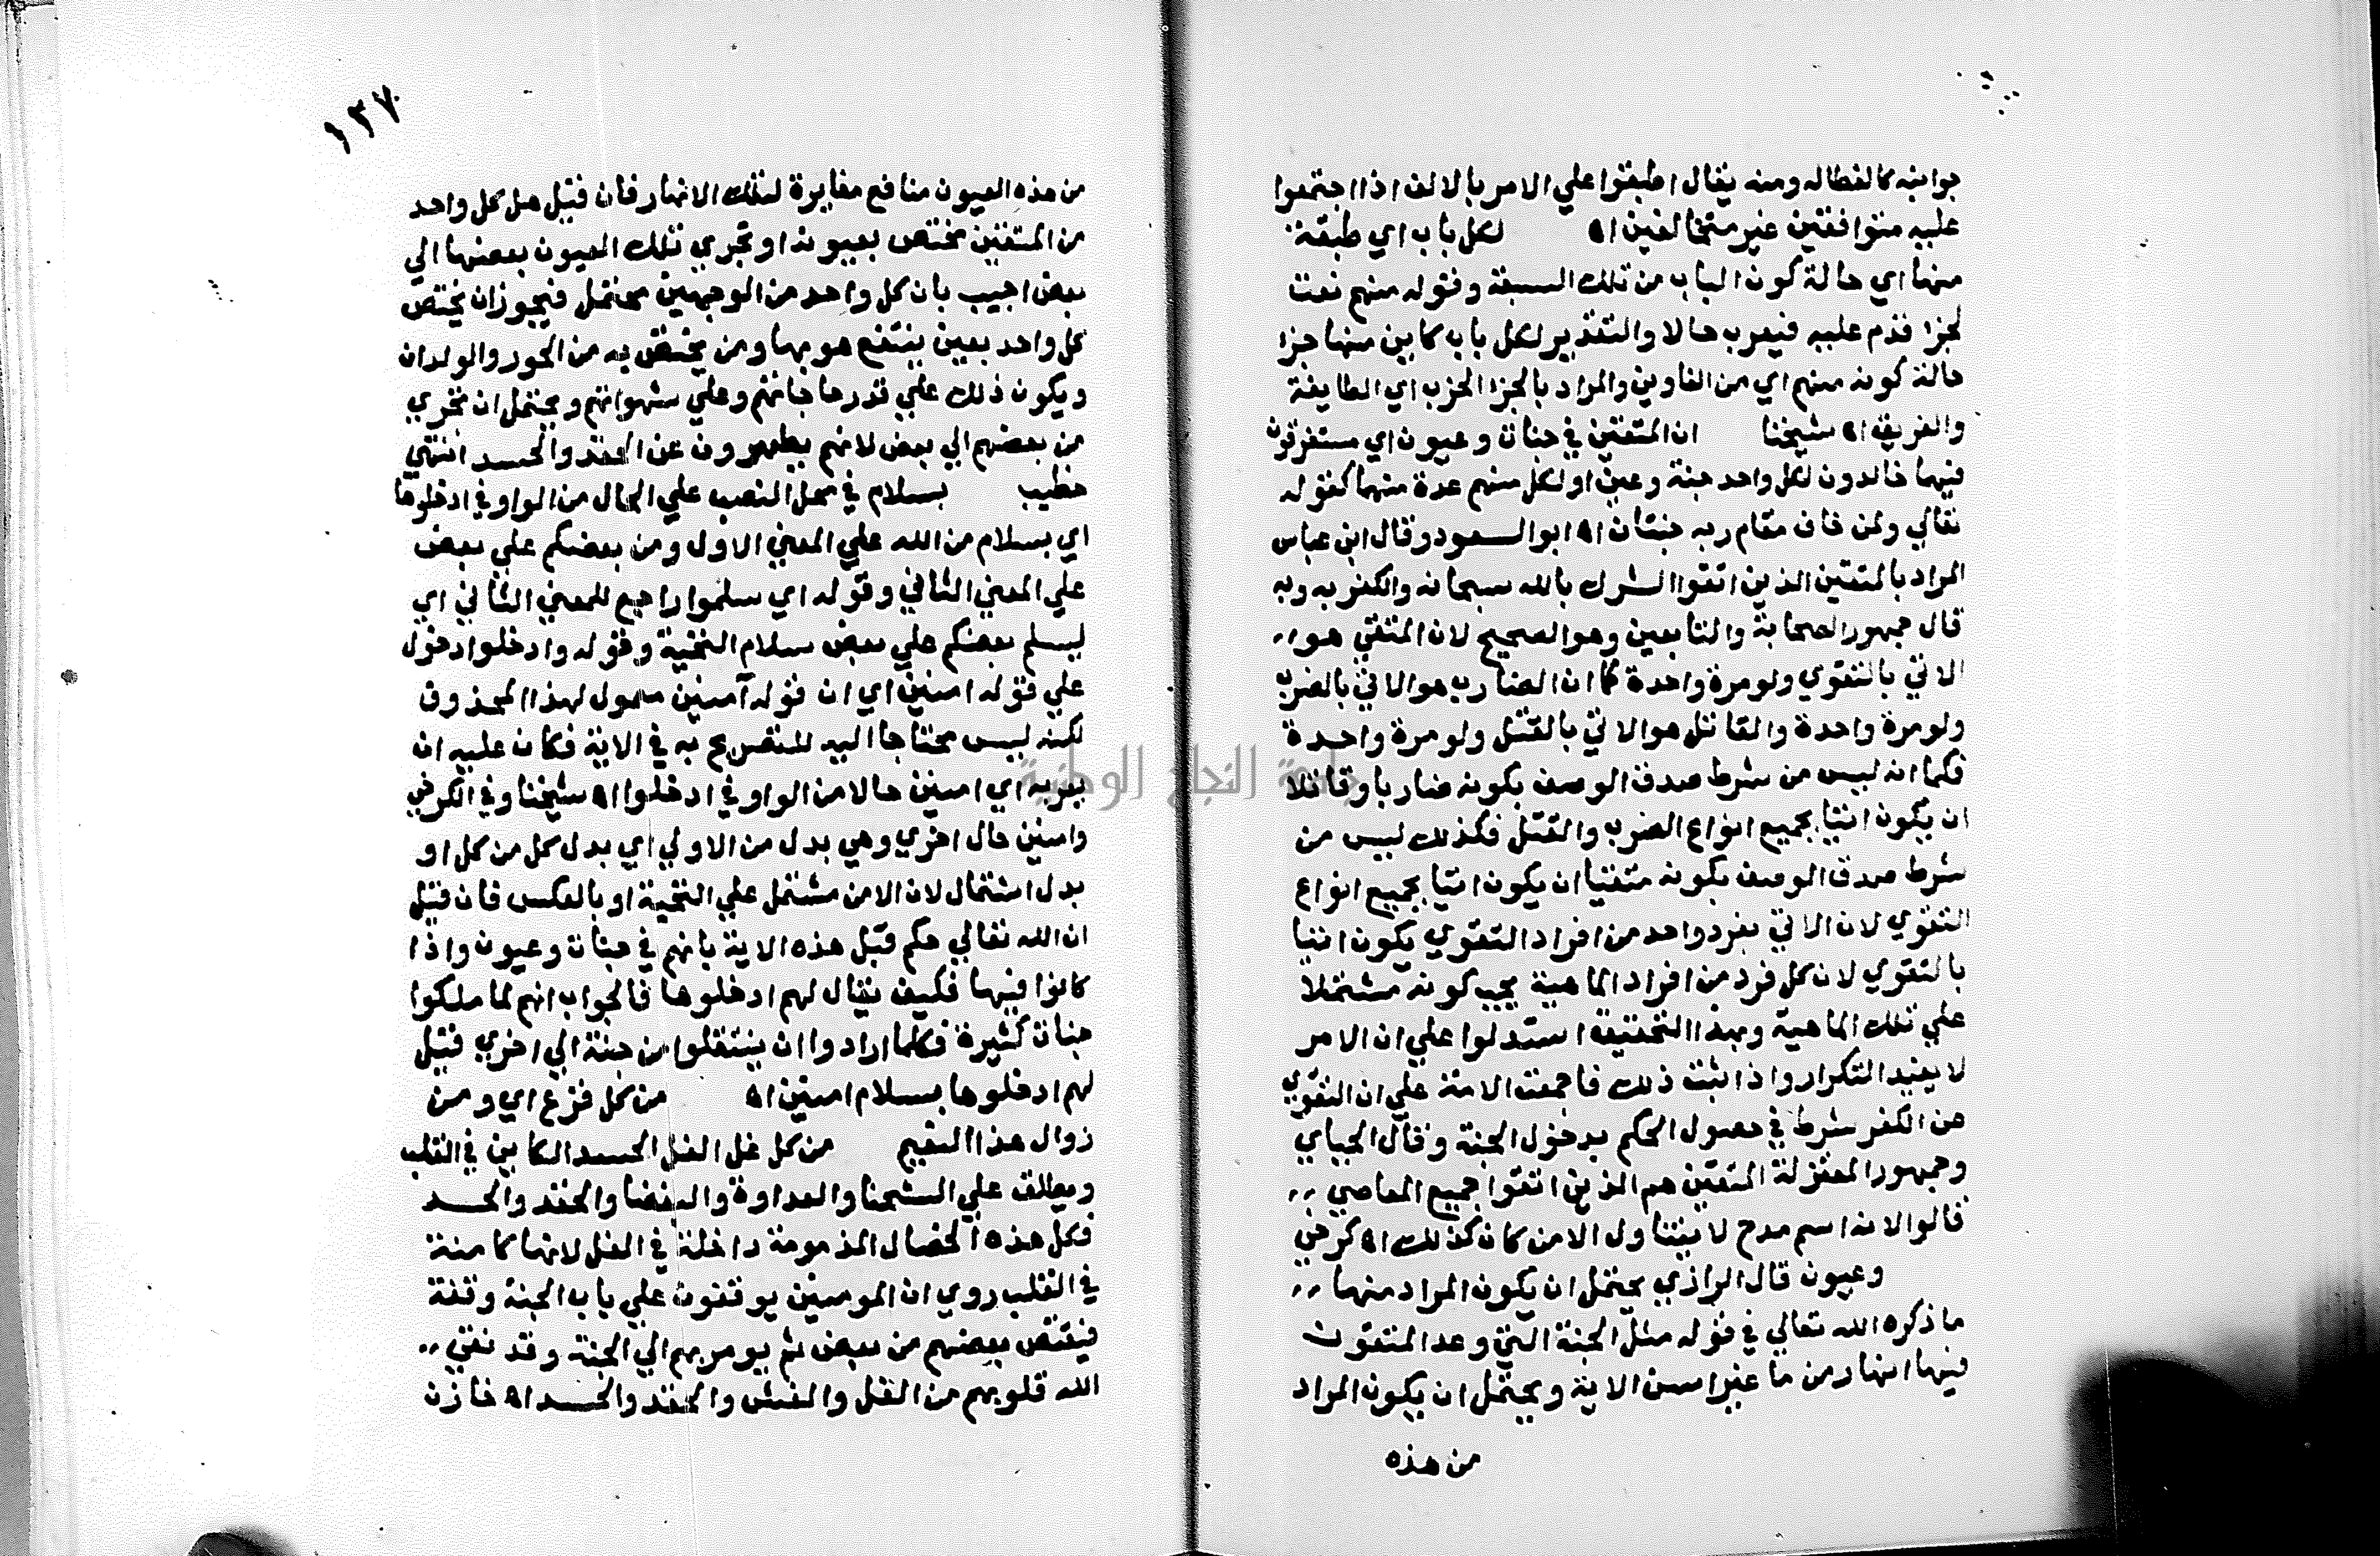 جوانبه كالغطا له ومنه يقال اطبقوا علي الامر بالالف اذا اجتمعوا
عليه متوافقين غير متخالفين اه لكل باب اي طبقة
منها اي حالة كون الباب من تلك السبعة وقوله منهم نعت
لجزا قدم عليه فيعرب حالا والتقدير لكل باب كاين منها جزا
حالة كونه منهم اي من الغاوين والمراد بالجزا الحزب اي الطايفة
والفريق اه شيخنا ان المتقين في جنات وعيون اي مستقرون
فيها خالدون لكل واحد جنة وعين او لكل منهم عدة منها كقوله
تعالي ولمن خاف مقام ربه جنتان اه ابو السعود وقال ابن عباس
المراد بالمتقين الذين اتقوا الشرك بالله سبحانه والكفر به وبه
قال جمهور الصحابة والتابعين وهو الصحيح لان المتقي هو
الاتي بالتقوي ولو مرة واحدة كما ان الضارب هو الاتي بالضرب
ولو مرة واحدة والقاتل هو الاتي بالقتل ولو مرة واحدة
فكما انه ليس من شرط صدق الوصف بكونه ضاربا وقاتلا
ان يكون اتيا بجميع انواع الضرب والقتل فكذلك ليس من
شرط صدق الوصف بكونه متقيا ان يكون اتيا بجميع انواع
التقوي لان الاتي بفرد واحد من افراد التقوي يكون اتيا
بالتقوي لان كل فرد من افراد الماهية يجب كونه مشتملا
علي تلك الماهية وبهذا التحقيق استدلوا علي ان الامر
لا يفيد التكرار واذا ثبت ذلك فاجمعت الامة علي ان التقوي
عن الكفر شرط في حصول الحكم بدخول الجنة وقال الجباي
وجمهور المعتزلة المتقين هم الذين اتقوا جميع المعاصي
قالوا لانه اسم مدح لا يتناول الا من كان كذلك اه كرخي
وعيون قال الرازي يحتمل ان يكون المراد منها
ما ذكره الله تعالي في قوله مثل الجنة التي وعد المتقون
فيها انهار من ما غير اسن الاية ويحتمل ان يكون المراد
من هذه
١٣٧
من هذه العيون منافع مغايرة لتلك الانهار فان قيل هل كل واحد
من المتقين مختص بعيونه او تجري تلك العيون بعضها الي
بعض اجيب بان كل واحد من الوجهين محتمل فيجوز ان يختص
كل واحد بعين ينتفع هو بها ومن يختص به من الحور والولدان
ويكون ذلك علي قدر حاجاتهم وعلي شهواتهم ويحتمل ان تجري
من بعضهم الي بعض لانهم يطهرون عن الحقد والحسد انتهي
خطيب بسلام في محل النصب علي الحال من الواو في ادخلوها
اي بسلام من الله علي المعني الاول ومن بعضكم علي بعض
علي المعني الثاني وقوله اي سلموا راجع للمعني الثاني اي
ليسلم بعضكم علي بعض سلام التحية وقوله وادخلوا دخول
علي قوله امنين اي ان قوله آمنين معمول لهذا المحذوف
لكنه ليس محتاجا اليه للتصريح به في الاية فكان عليه ان
يعربه اي امنين حالا من الواو في ادخلوا اه شيخنا وفي الكرخي
وامنين حال اخري وهي بدل من الاولي اي بدل كل من كل او
بدل اشتمال لان الامن مشتمل علي التحية او بالعكس فان قيل
ان الله تعالي حكم قبل هذه الاية بانهم في جنات وعيون واذا
كانوا فيها فكيف يقال لهم ادخلوها فالجواب انهم لما ملكوا
جنات كثيرة فكلما ارادوا ان ينتقلوا من جنة الي اخري قيل
لهم ادخلوها بسلام امنين اه من كل فزع اي ومن
زوال هذا النعيم من كل غل الغل الحسد الكاين في القلب
ويطلق علي الشحنا والعداوة والبغضا والحقد والحسد
فكل هذه الخصال المذمومة داخلة في الغل لانها كامنة
في القلب روي ان المومنين يوقفون علي باب الجنة وقفة
فيقتص بعضهم من بعض ثم يومر بهم الي الجنة وقد نقي
الله قلوبهم من الغل والغش والحقد والحسد اه خازن
جامعة النجاح الوطنية